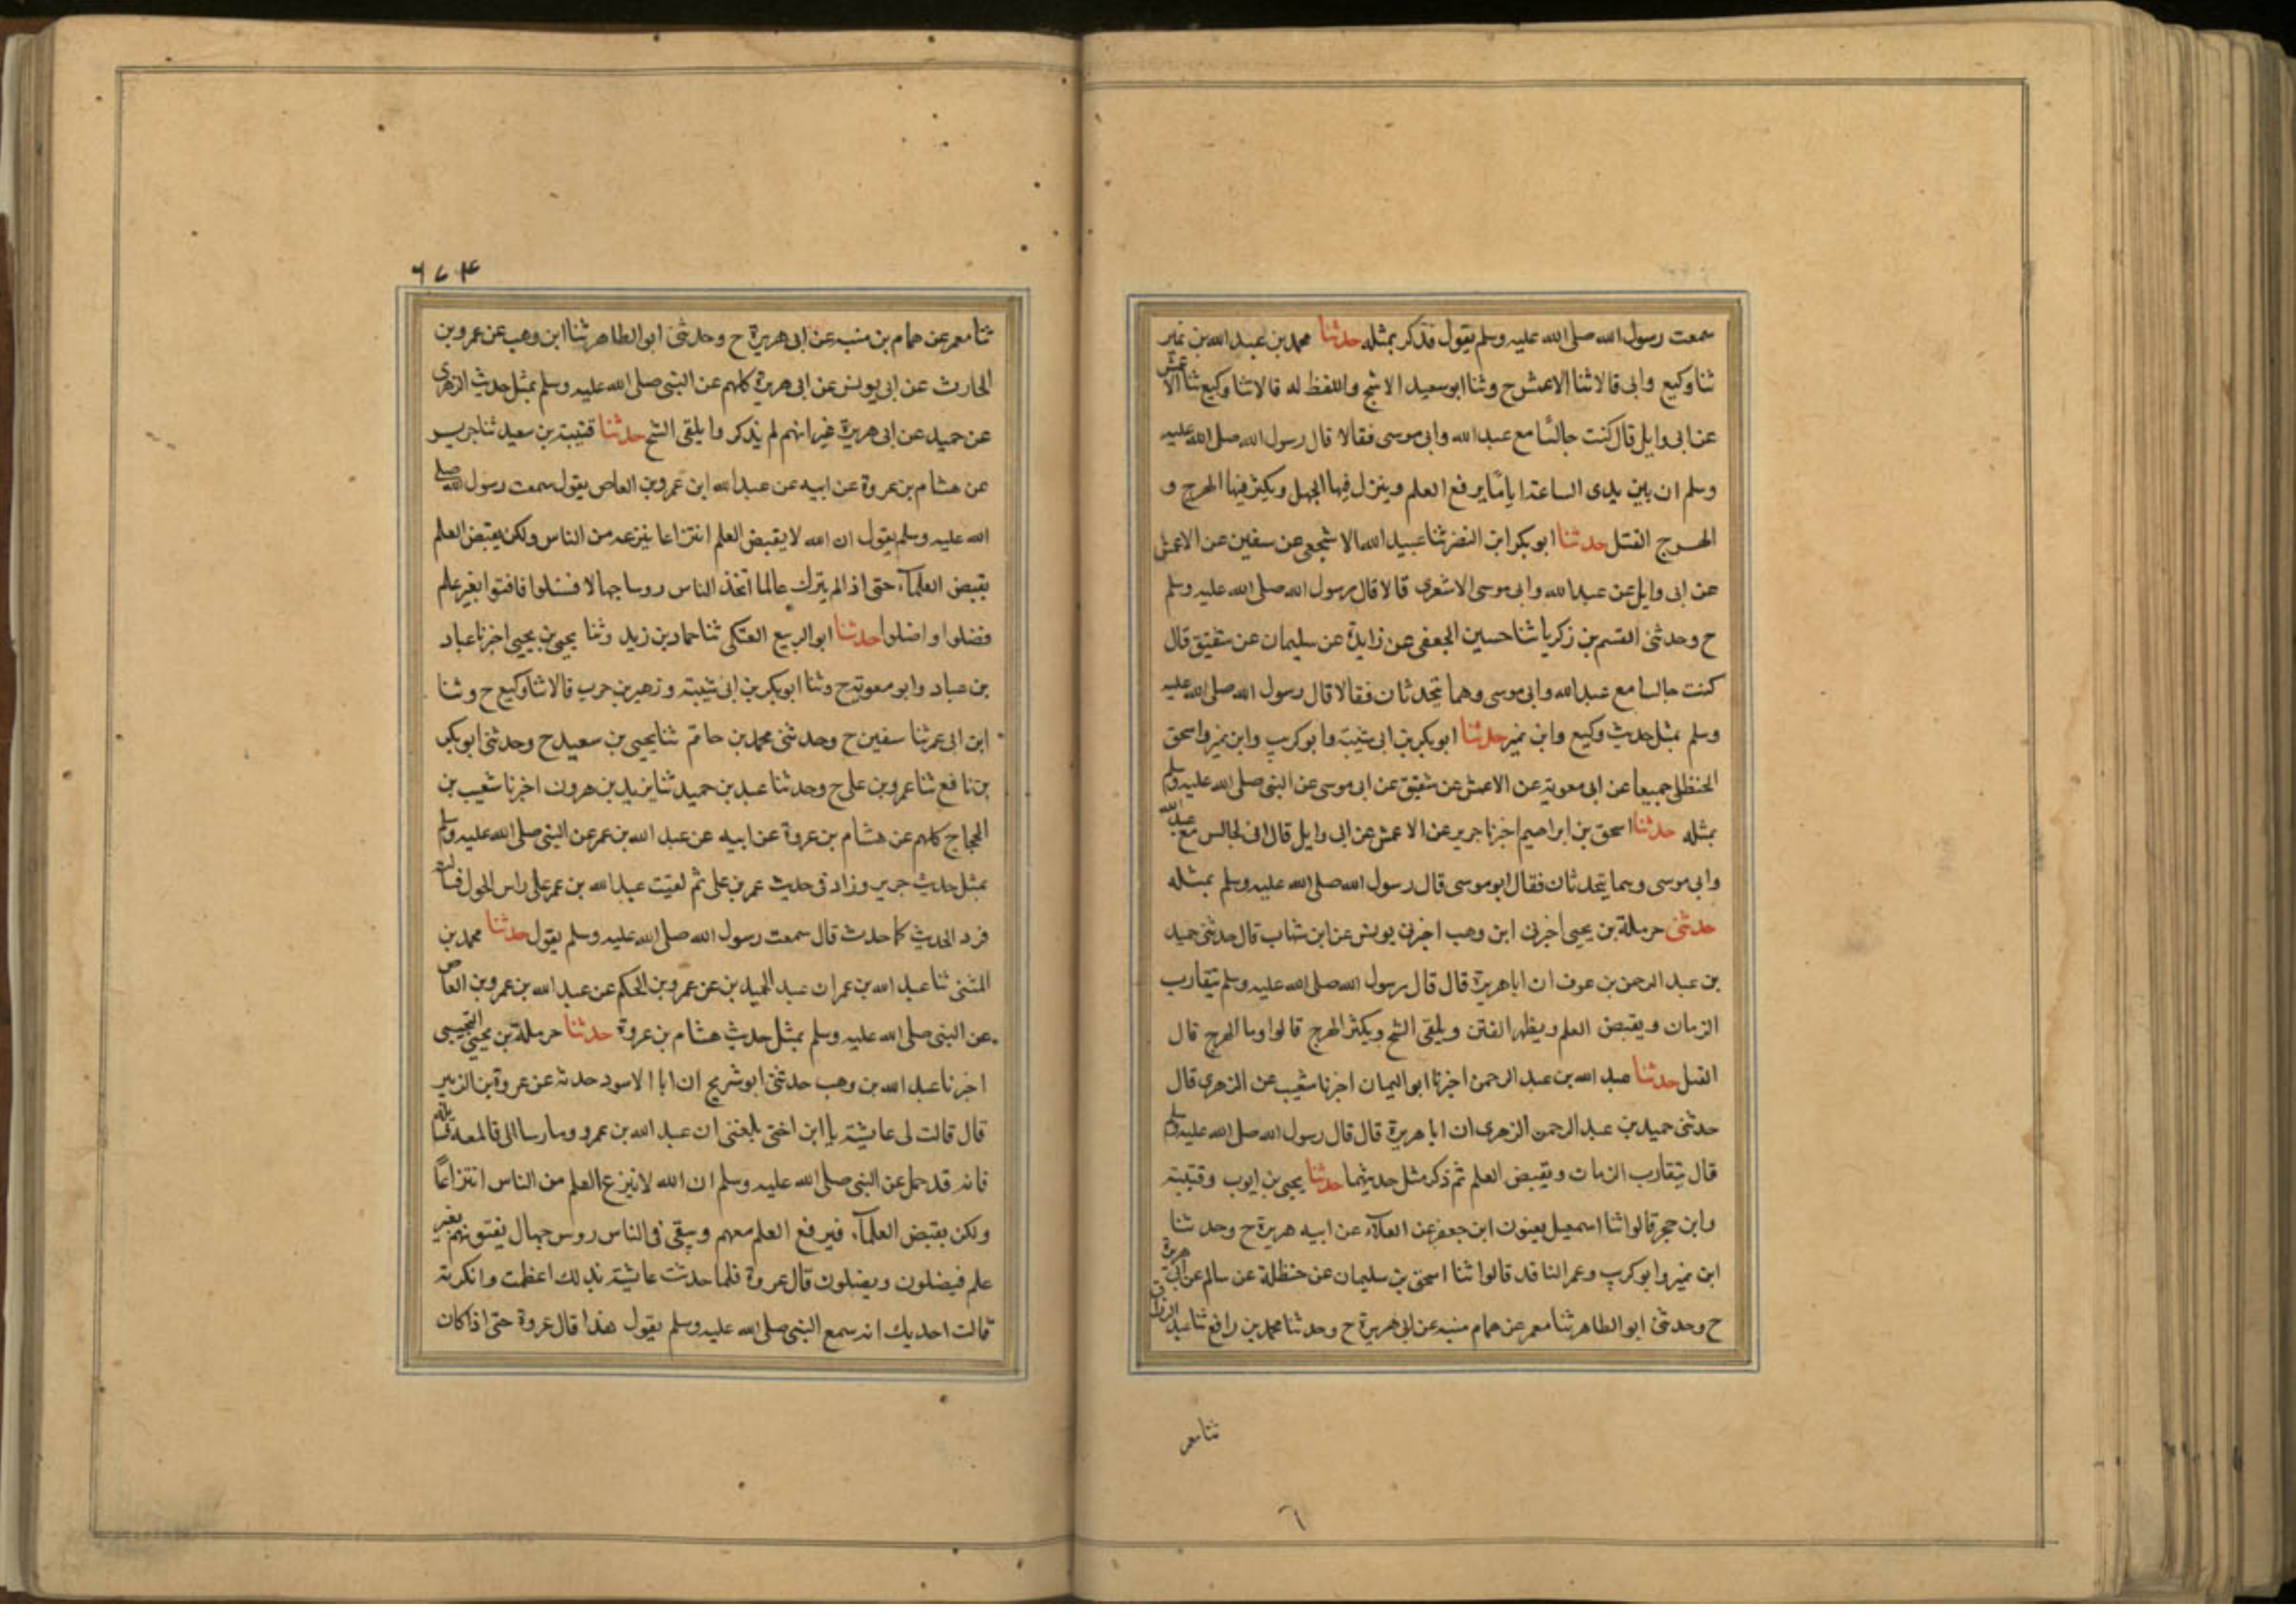 سمعت رسول الله صلى الله عليه وسلم يقول فذكر بمثله حدثنا محمد بن عبد الله بن نمير
ثنا وكيع وابى قالا ثنا الاعمش ح وثنا ابو سعيد الاشج واللفظ له قالا ثنا وكيع ثنا الاعمش
عن ابى وايل قال كنت جالسًا مع عبد الله وابى موسى فقالا قال رسول الله صلى الله عليه
وسلم ان بين يدى الساعة ايامًا يرفع العلم وينزل فيها الجهل ويكثر فيها الهرج و
الهرج القتل حدثنا ابو بكر ابن النضر ثنا عبيد الله الاشجعى عن سفين عن الاعمش
عن ابى وايل عن عبد الله وابى موسى الاشعرى قالا قال رسول الله صلى الله عليه وسلم
ح وحدثنى القسم بن زكريا ثنا حسين الجعفى عن زايدة عن سليمان عن شقيق قال
كنت جالسا مع عبد الله وابى موسى وهما يتحدثان فقالا قال رسول الله صلى الله عليه
وسلم بمثل حديث وكيع وابن نمير حدثنا ابو بكر بن ابى شيبة وابو كريب وابن نمير واسحق
الحنظلى جميعا عن ابى معوية عن الاعمش عن شقيق عن ابى موسى عن النبى صلى الله عليه وسلم
بمثله حدثنا اسحق بن ابراهيم اخبرنا جرير عن الاعمش عن ابى وايل قال انى لجالس مع عبد الله
وابى موسى وهما يتحدثان فقال ابو موسى قال رسول الله صلى الله عليه وسلم بمثله
حدثنى حرملة بن يحيى اخبرنى ابن وهب اخبرنى يونس عن ابن شهاب قال حدثنى حميد
بن عبد الرحمن بن عوف ان ابا هريرة قال قال رسول الله صلى الله عليه وسلم يتقارب
الزمان ويقبض العلم ويظهر الفتن ويلقى الشح ويكثر الهرج قالوا وما الهرج قال
القتل حدثنا عبد الله بن عبد الرحمن اخبرنا ابو اليمان اخبرنا شعيب عن الزهرى قال
حدثنى حميد بن عبد الرحمن الزهرى ان ابا هريرة قال قال رسول الله صلى الله عليه وسلم
قال يتقارب الزمان ويقبض العلم ثم ذكر مثل حديثهما حدثنا يحيى بن ايوب وقتيبة
وابن حجر قالوا ثنا اسمعيل يعنون ابن جعفر عن العلاء عن ابيه هريرة ح وحدثنا
ابن نمير وابو كريب وعمر الناقد قالوا ثنا اسحق بن سليمان عن حنظلة عن سالم عن ابى هريرة
ح وحدثنى ابو الطاهر ثنا معمر عن همام منبه عن ابى هريرة ح وحدثنا محمد بن رافع ثنا عبد الرزاق
ثنا معمر
٦
٦٧۴
ثنا معمر عن همام بن منبه عن ابى هريرة ح وحدثنى ابو الطاهر ثنا ابن وهب عن عمرو بن
الحارث عن ابى يونس عن ابى هريرة كلهم عن النبى صلى الله عليه وسلم بمثل حديث الزهرى
عن حميد عن ابى هريرة غير انهم لم يذكروا يلقى الشح حدثنا قتيبة بن سعيد ثنا جرير
عن هشام بن عروة عن ابيه عن عبد الله ابن عمرو بن العاص يقول سمعت رسول الله صلى
الله عليه وسلم يقول ان الله لا يقبض العلم انتزاعا ينزعه من الناس ولكن يقبض العلم
بقبض العلمآء حتى اذا لم يترك عالما اتخذ الناس روسا جهالا فسئلوا فافتوا بغير علم
فضلوا واضلوا حدثنا ابو الربيع العتكى ثنا حماد بن زيد وثنا يحيى بن يحيى اخبرنا عباد
بن عباد وابو معوية ح وثنا ابو بكر بن ابى شيبة وزهير بن حرب قالا ثنا وكيع ح وثنا
ابن ابى عمر ثنا سفين ح وحدثنى محمد بن حاتم ثنا يحيى بن سعيد ح وحدثنى ابو بكر
بن نافع ثنا عمرو بن على ح وحدثنا عبد بن حميد ثنا يزيد بن هرون اخبرنا شعيب بن
الحجاج كلهم عن هشام بن عروة عن ابيه عن عبد الله بن عمر عن النبى صلى الله عليه وسلم
بمثل حديث جرير وزاد فى حديث عمر بن على ثم لقيت عبد الله بن عمر على راس الحول فسالته
فرد الحديث كما حدث قال سمعت رسول الله صلى الله عليه وسلم يقول حدثنا محمد بن
المثنى ثنا عبد الله بن عمران عبد الحميد بن عن عمرو بن الحكم عن عبد الله بن عمرو بن العاص
عن النبى صلى الله عليه وسلم بمثل حديث هشام بن عروة حدثنا حرملة بن يحيى التجيبى
اخبرنا عبد الله بن وهب حدثنى ابو شريح ان ابا الاسود حدثه عن عروة بن الزبير
قال قالت لى عايشة يا ابن اختى بلغنى ان عبد الله بن عمرو
فانه قد حمل عن النبى صلى الله عليه وسلم ان الله لا ينزع العلم من الناس انتزاعًا
ولكن يقبض العلمآء فيرفع العلم معهم ويبقى فى الناس روس جهال يفتونهم بغير
علم فيضلون ويضلون قال عروة فلما حدثت عايشة بذلك اعظمت وانكرته
قالت احديك انه سمع النبى صلى الله عليه وسلم يقول هذا قال عروة حتى اذا كان